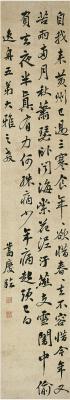 自我來黃州已過三寒食年欲惜春去不容惜今年又苦
雨兩月秋蕭瑟卧聞海棠花泥汙燕支雪闇中偷
負去夜半真有力何殊病少年病起頭已白
五弟大雅之